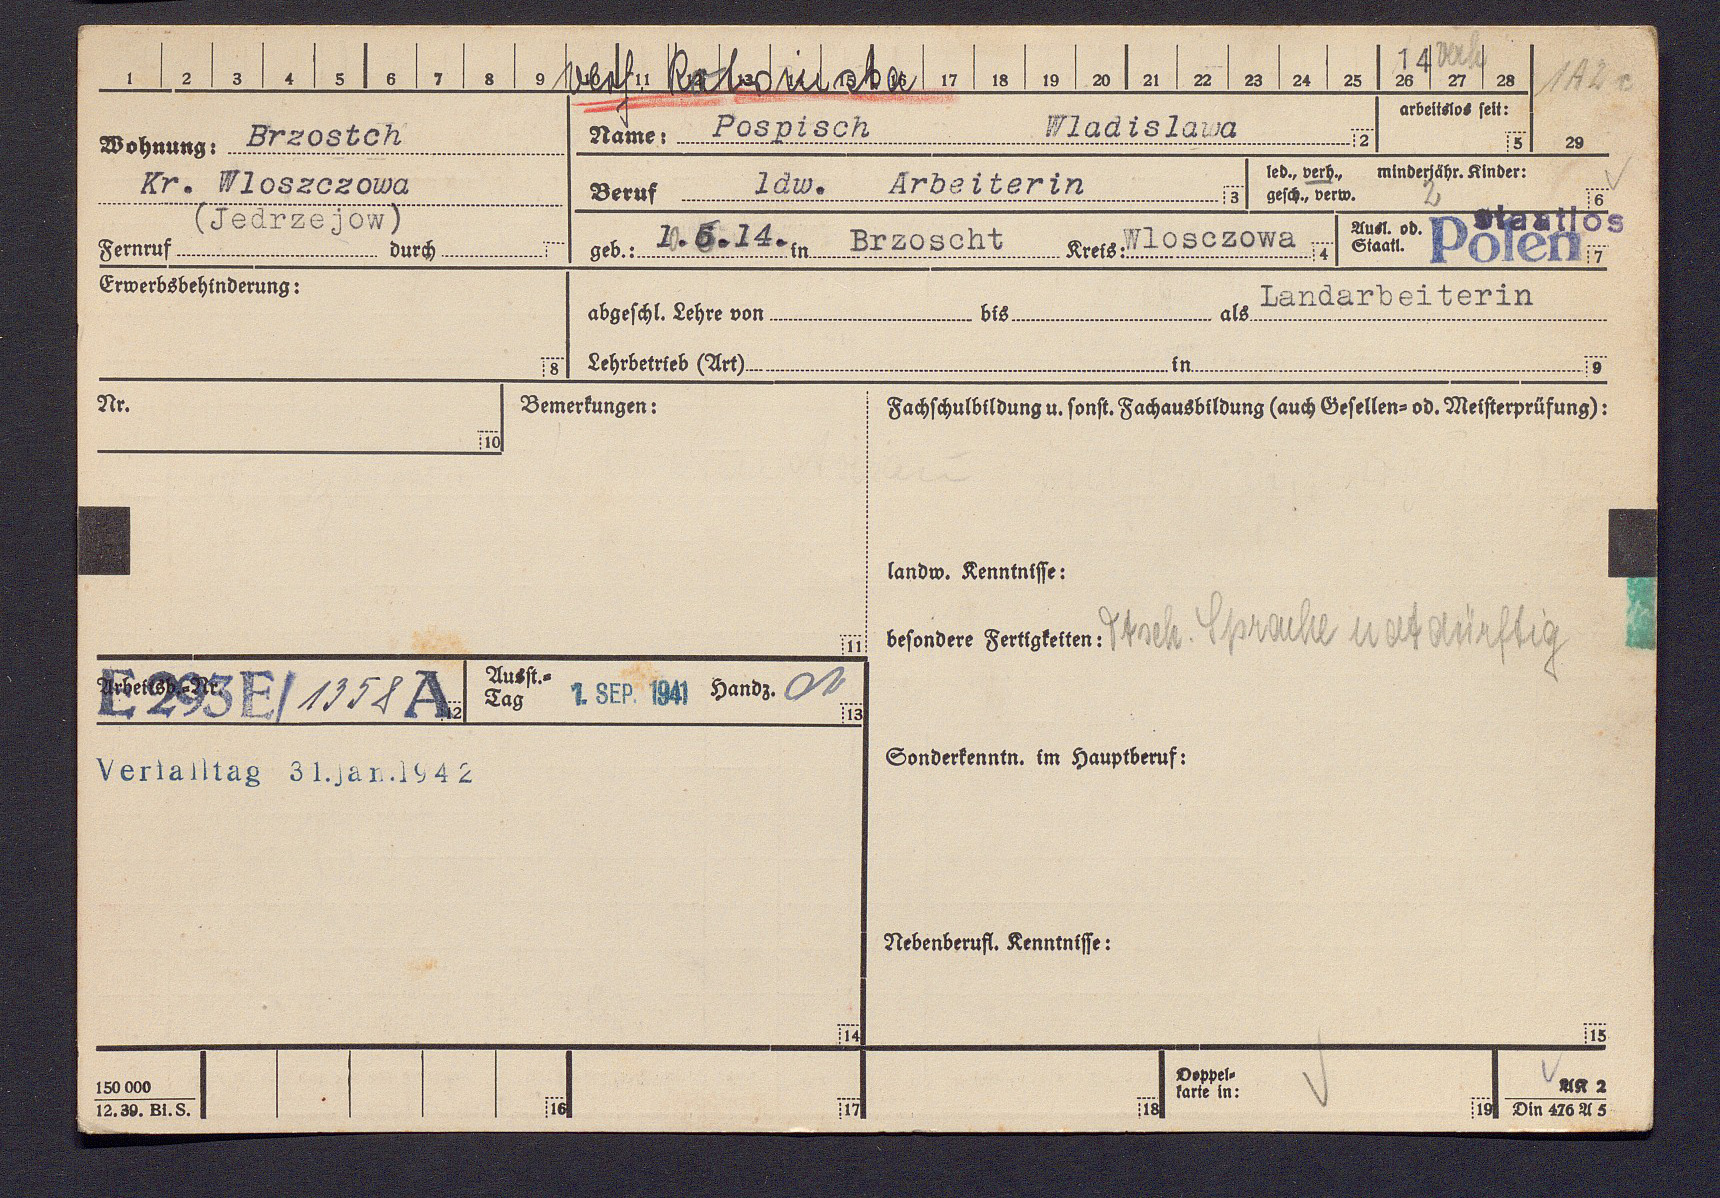 1 2 3 4 5 6 7 8 9 10 11 12 13 14 15 16 17 18 19 20 21 22 23 24 25 26 27 28
14 verh
1A2
arbeitslos seit:
5
29
Wohnung: Brzostch
Kr. Wloszczowa
(Jedrzejow)
Fernruf durch
Name: Pospisch Wladislawa 2
Beruf ldw. Arbeiterin 3
led., verh., minderjähr. Kinder:
gesch., verw. 2 6
geb.: 1.5.14. in Brzoscht Kreis: Wlosczowa 4
Ausl. od.
Staatl. Polen staatlos 7
Erwerbsbehinderung:
8
abgeschl. Lehre von bis als Landarbeiterin
Lehrbetrieb (Art) in 9
Nr.
10
Bemerkungen:
11
Fachschulbildung u. sonst. Fachausbildung (auch Gesellen- od. Meisterprüfung):
landw. Kenntnisse:
besondere Fertigkeiten: Dtsch. Sprache notdürftig
Arbeitsb.-Nr.
E 293E/1358 A 12
Ausst.-
Tag 1. SEP. 1941 Handz. 13
Verfalltag 31.Jan.1942
Sonderkenntn. im Hauptberuf:
Nebenberufl. Kenntnisse:
14
15
150 000
12.39. Bi.S.
16
17
18
Doppel-
karte in:
19
AK 2
Din 476 A 5